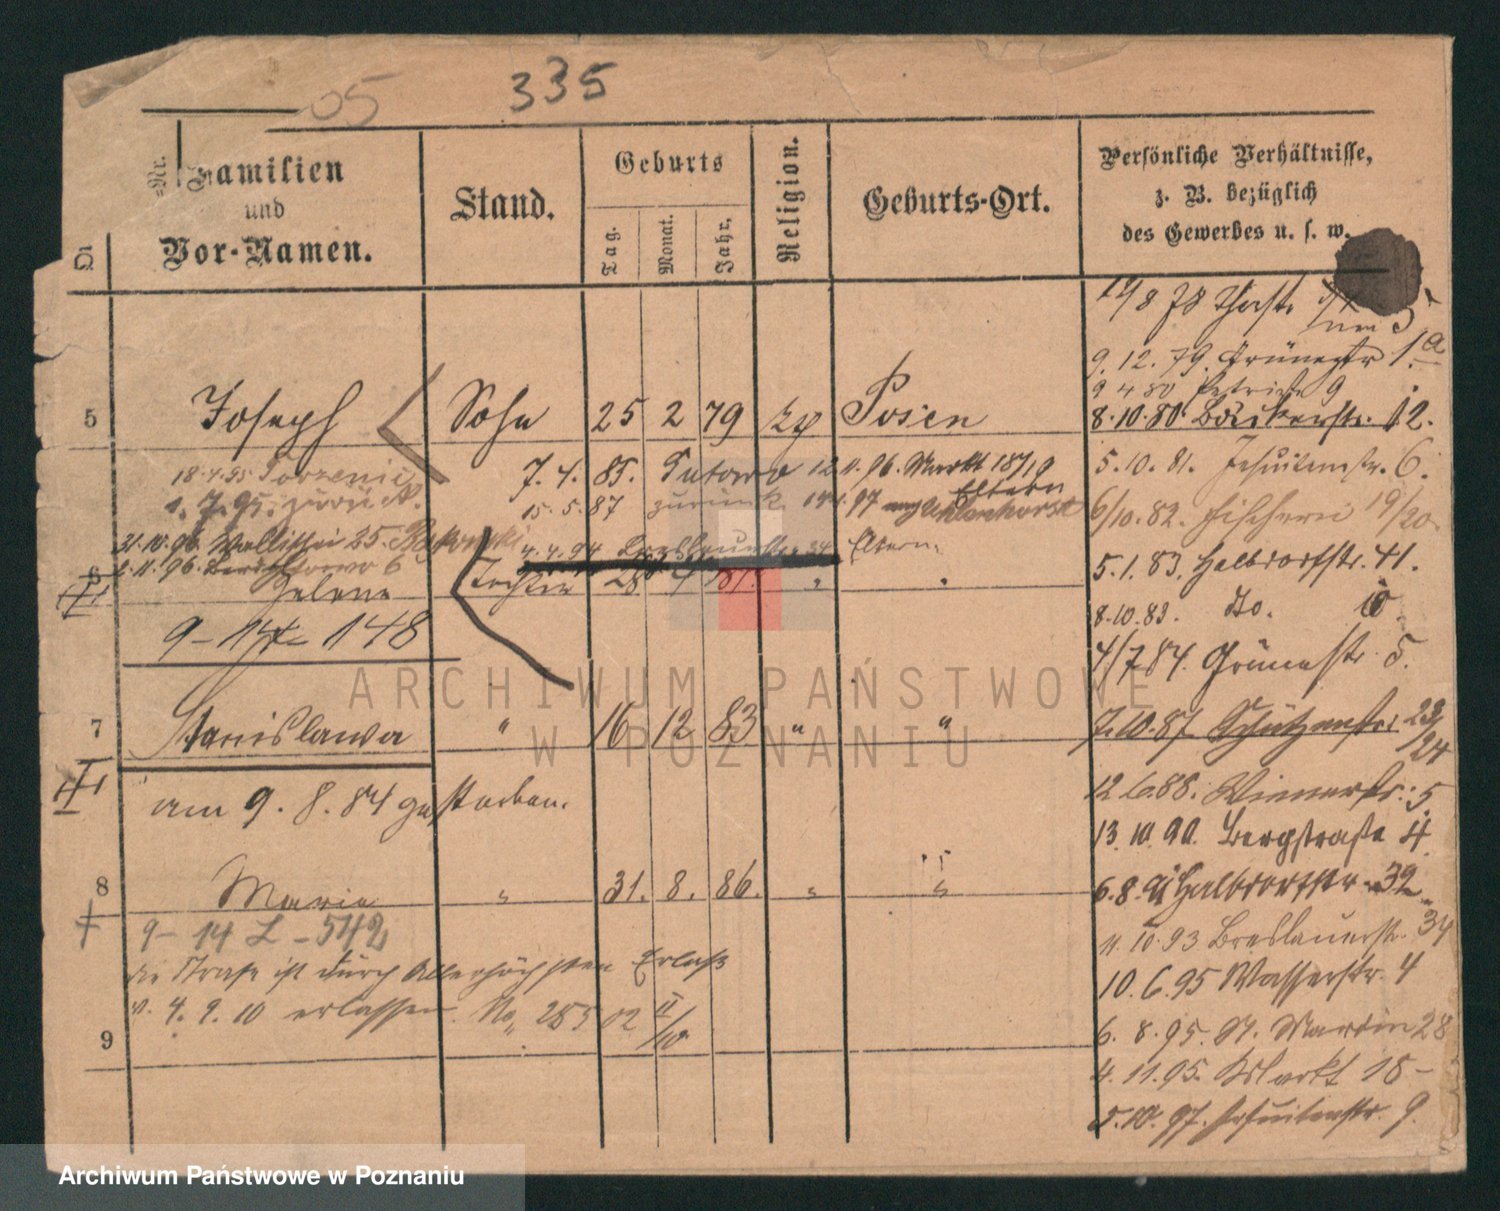 335
05
Nr.
Familien
und
Vor-Namen.
Stand.
Geburts
Tag.
Monat.
Jahr.
Religion.
Geburts-Ort.
Persönliche Verhältnisse,
z. B. bezüglich
des Gewerbes u. s. w.
5 Joseph Sohn 25 2 79 Posen
18.4.95
1.7.95. zurück.
7.4.85. Gutowo
15.5.87 zurück
12.11.96. Markt 18/19
Eltern
31.10.96. Wallischei 25.
4.4.94 Breslauerstr. 34 Eltern.
6 Helene Tochter 28 4 81. " "
9-147-148
7 Stanislawa " 16 12 83 " "
am 9. 8. 84 gestorben.
8 Maria " 31. 8. 86. " "
9-14 L-542
die Strafe ist durch Allerhöchsten Erlaß
v. 4. 9. 10 erlassen. No. 285 02 II/10
9
9. 12. 79. Grünestr 1.a
9 4 80 Petristr 9
8.10.80 Bäckerstr. 12.
5.10.81. Jesuitenstr. 6.
6/10.82. Fischerei 19/20.
5.1.83. Halbdorfstr. 41.
8.10.83. do. 10.
4/7 84. Grünestr. 5.
7.10.87 Schützenstr. 23/24
12.6.88. Wienerstr. 5.
13.10.90. Bergstraße 4.
6.8.91 Halbdorfstr. 32.
11.10.93 Breslauerstr. 34
10.6.95 Wasserstr. 4
6. 8. 95. St. Martin 28
4.11.95. Markt 18-
5.10.97. Jesuitenstr. 9.
ARCHIWUM PAŃSTWOWE
W POZNANIU
Archiwum Państwowe w Poznaniu